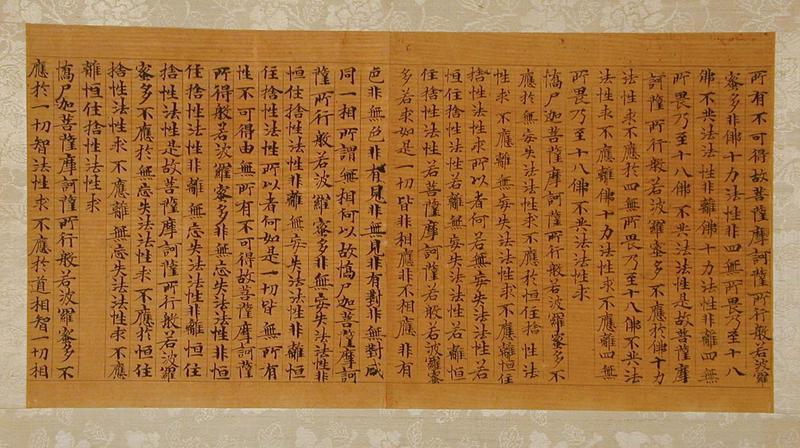 所有不可得故菩薩摩訶薩所行般若波羅
蜜多非佛十力法性非四無所畏乃至十八
佛不共法法性非離佛十力法性非離四無
所畏乃至十八佛不共法法性是故菩薩摩
訶薩所行般若波羅蜜多不應於佛十力
法性求不應於四無所畏乃至十八佛不共法
法性求不應離佛十力法性求不應離四無
所畏乃至十八佛不共法法性求
憍尸迦菩薩摩訶薩所行般若波羅蜜多不
應於無忘失法法性求不應於恒住捨性法
性求不應離無忘失法法性求不應離恒住
捨性法性求所以者何若無忘失法法性若
恒住捨性法性若離無忘失法法性若離恒
住捨性法性若菩薩摩訶薩若般若波羅蜜
多若求如是一切皆非相應非不相應非有
色非無色非有見非無見非有對非無對咸
同一相所謂無相何以故憍尸迦菩薩摩訶
薩所行般若波羅蜜多非無忘失法法性非
恒住捨性法性非離無忘失法法性非離恒
住捨性法性所以者何如是一切皆無所有
性不可得由無所有不可得故菩薩摩訶薩
所行般若波羅蜜多非無忘失法法性非恒
住捨性法性非離無忘失法法性非離恒住
捨性法性是故菩薩摩訶薩所行般若波羅
蜜多不應於無忘失法法性求不應於恒住
捨性法性求不應離無忘失法法性求不應
離恒住捨性法性求
憍尸迦菩薩摩訶薩所行般若波羅蜜多不
應於一切智法性求不應於道相智一切相